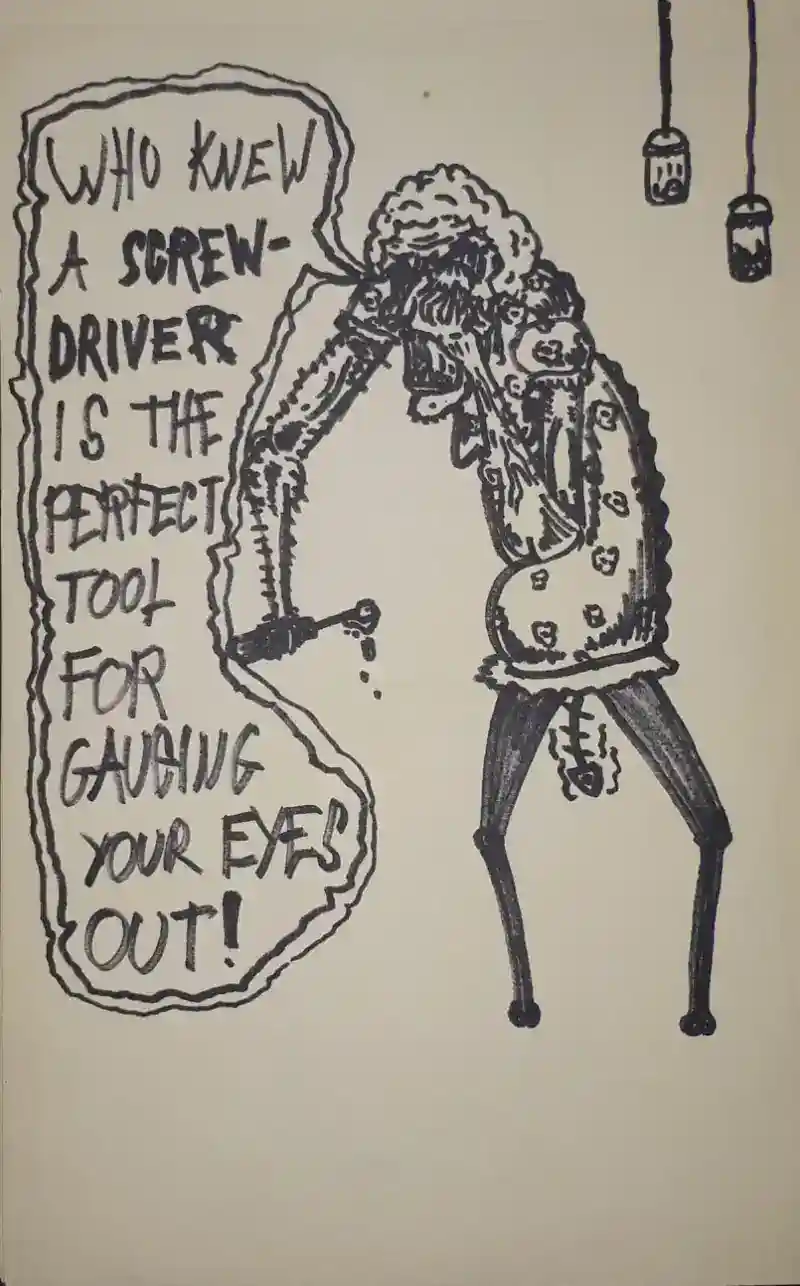 WHO KNEW
A SCREW-
DRIVER
IS THE
PERFECT
TOOL
FOR
GAUGING
YOUR EYES
OUT!